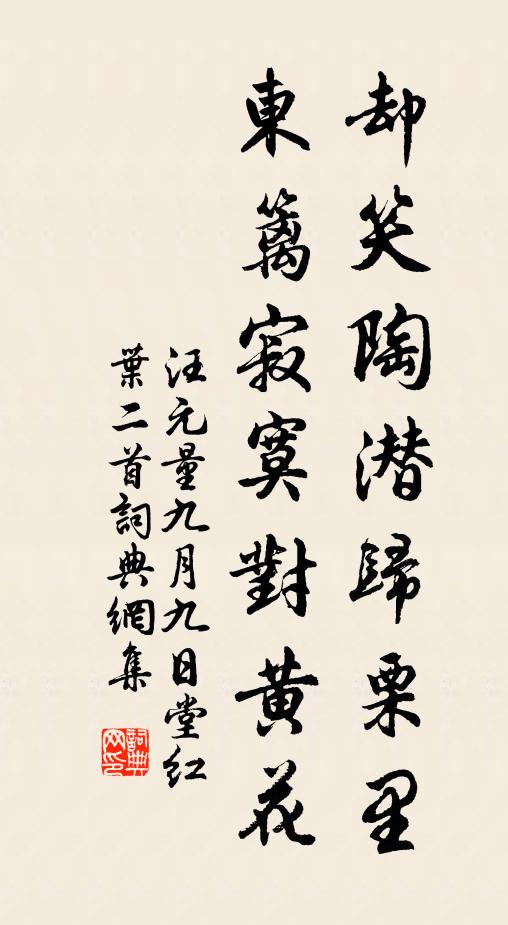 却笑陶潜歸栗里
東籬寂寞對黄花
汪元量九月九日堂紅
葉二首詞典網集
詞典網印